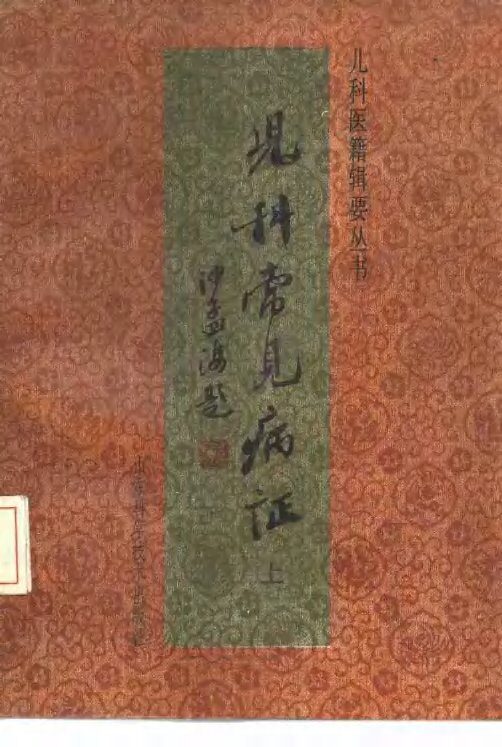 儿科医籍辑要丛书
児科常见病证
上
沙孟海题